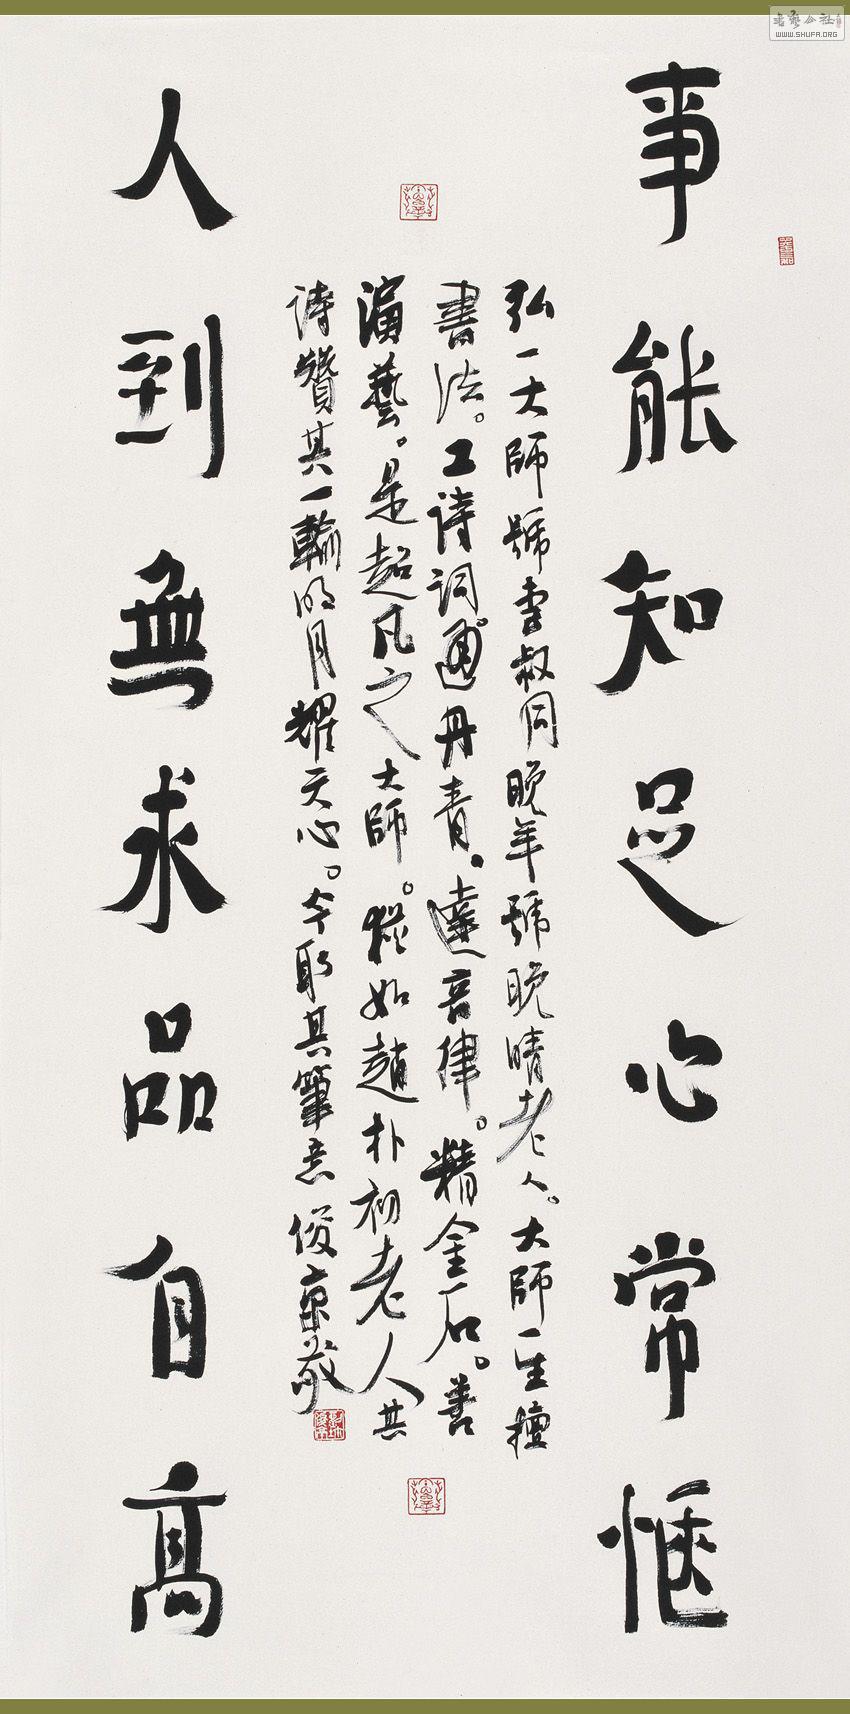 事能知足心常惬
弘一大师號李叔同晚年號晚晴老人。大师一生擅
書法。工诗词。通丹青。達音律。精金石。善
演藝。是超凡之大師。故如趙朴初老人其
诗贊其一輪明月耀天心。今取其筆意俊京敬
人到無求品自高
WWW.SHUFA.ORG